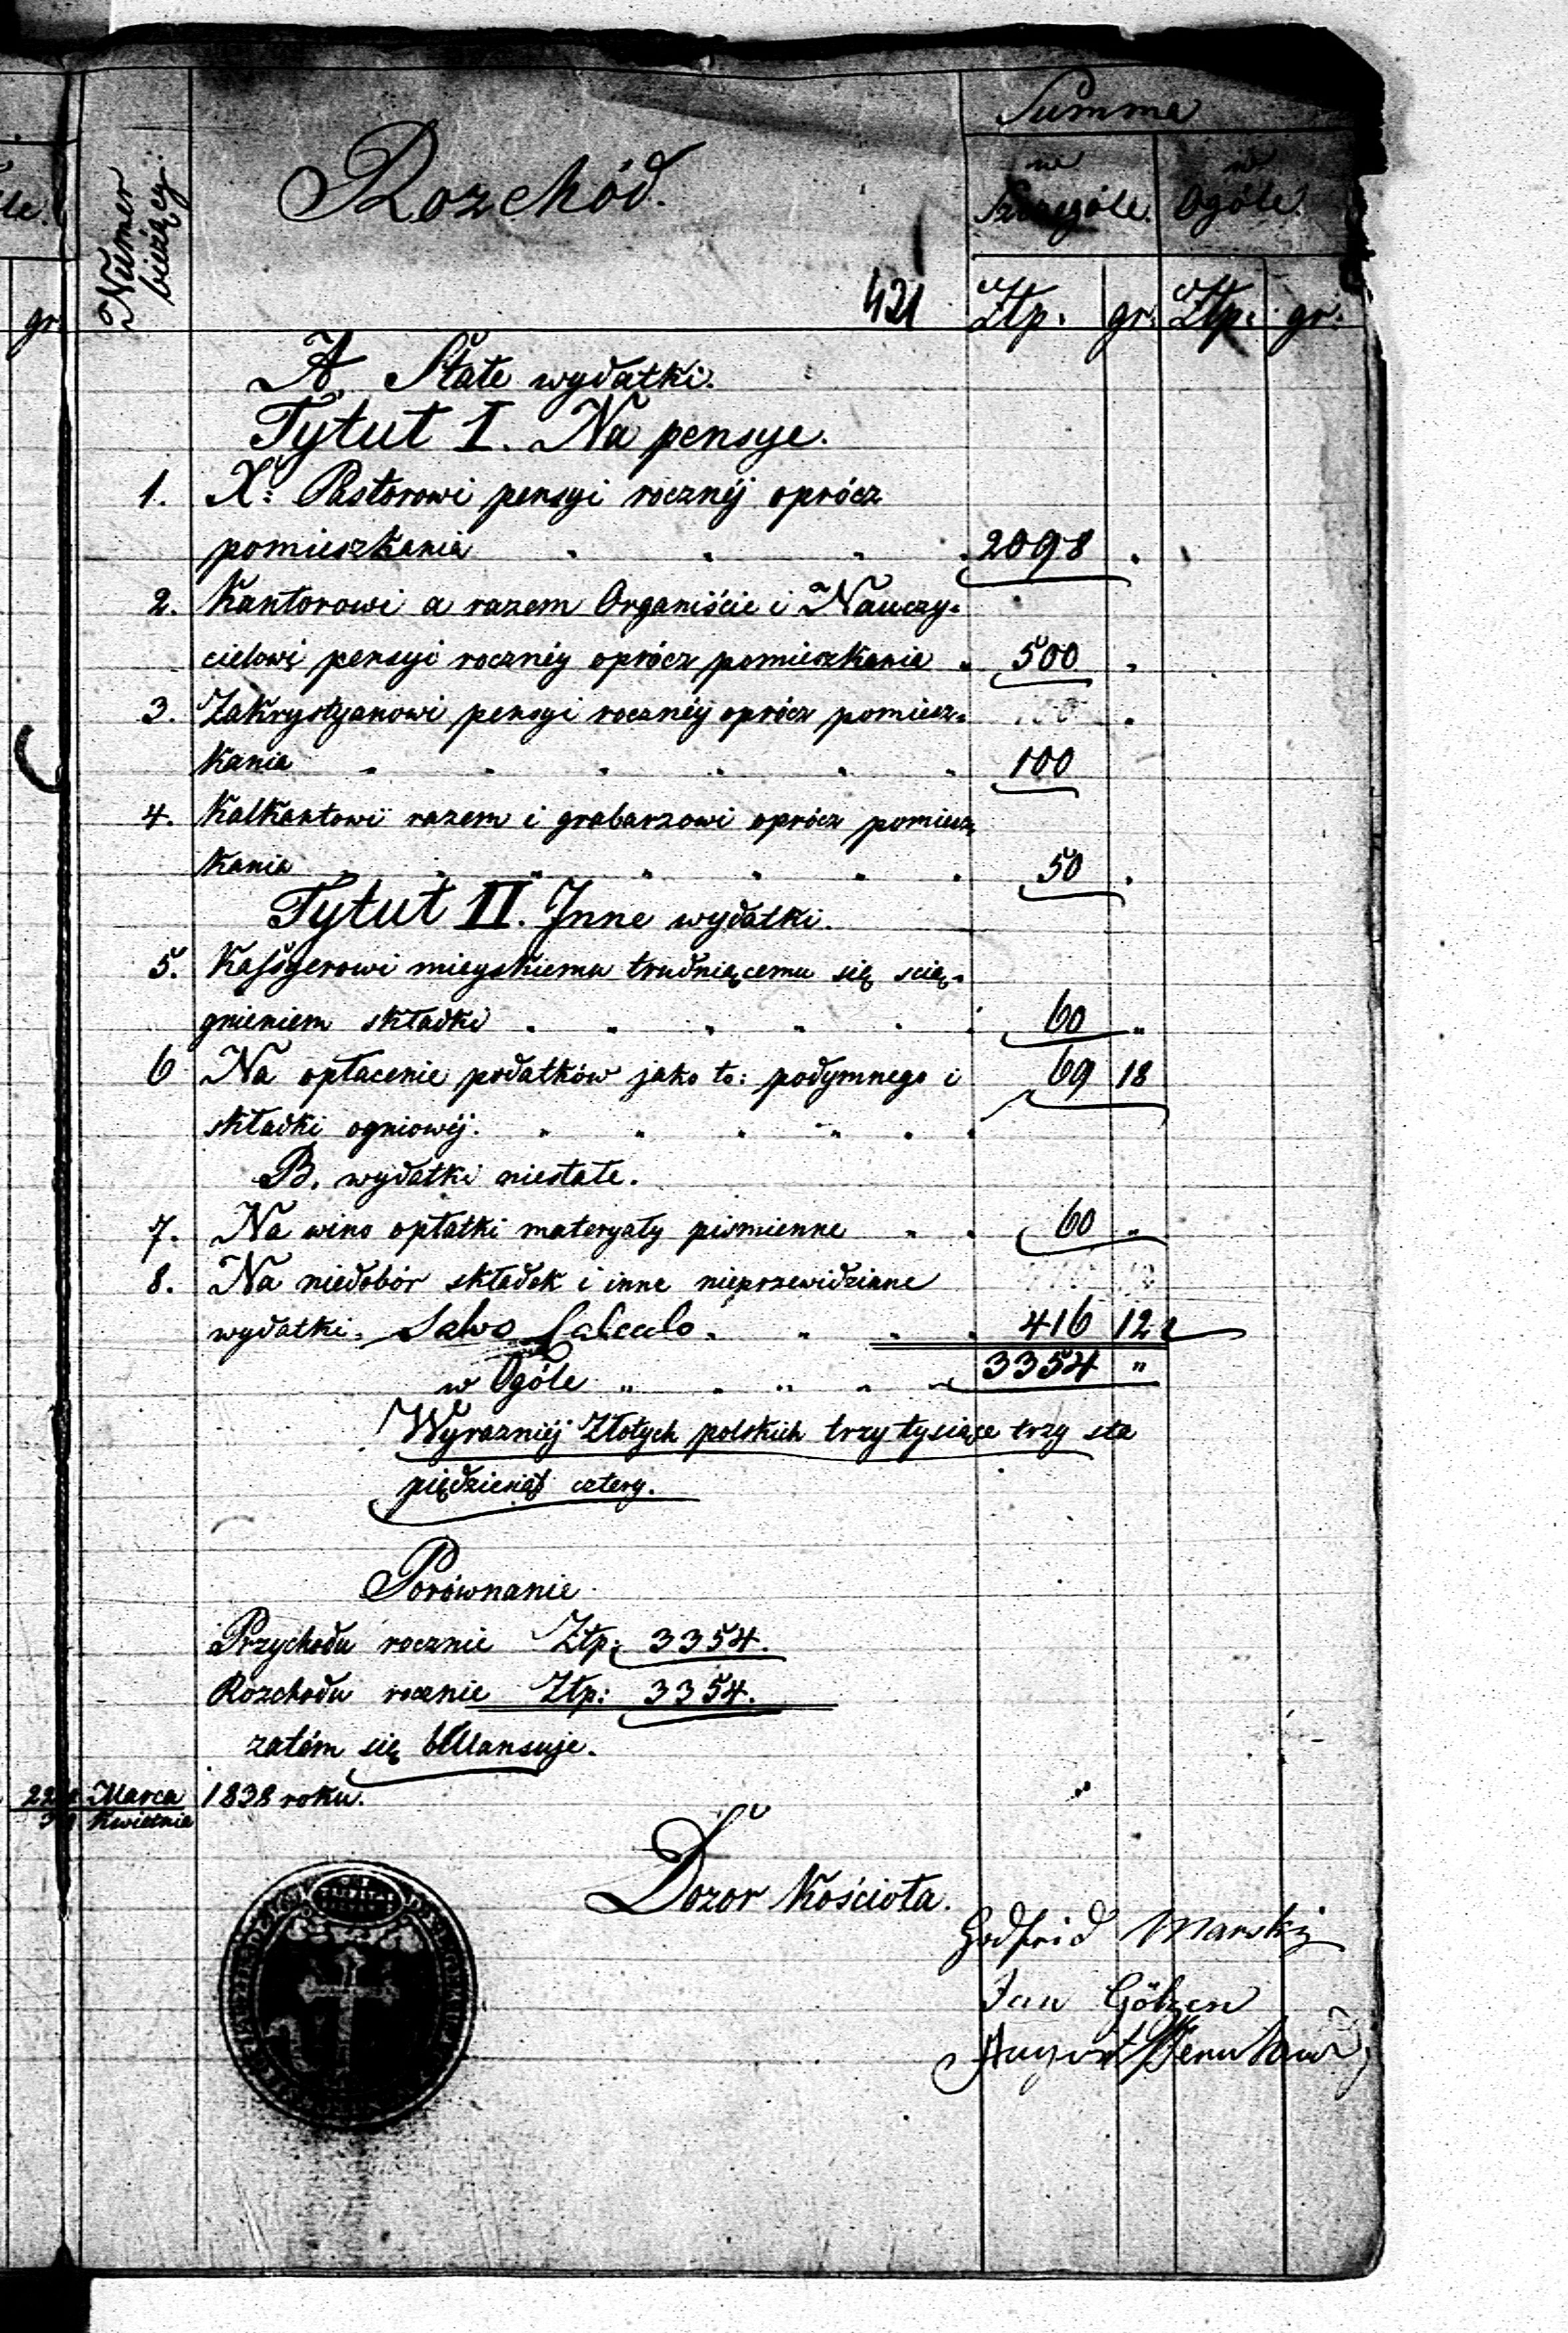 Summa
le.
Numer bieżący.
Rozchód.
w Szczególe.
w Ogóle.
421
gr.
Złp. gr. Złp. gr.
A. Stałe wydatki.
Tytuł I. Na pensye.
1. X: Pastorowi pensyi rocznéj oprócz
pomieszkania " " " " 2098 "
2. Kantorowi a razem Organiście i Nauczy-
cielowi pensyi rocznéj oprócz pomieszkania " 500 "
3. Zakrystyanowi pensyi rocznéj oprócz pomiesz- "
kania " " " " " " 100
4. Kalkantowi razem i grabarzowi oprócz pomiesz-
kania " " " " " " " 50 "
Tytuł II. Inne wydatki.
5. Kassyerowi mieyskiemu trudniącemu się scią-
gnieniem składki " " " " " " 60 "
6 Na opłacenie podatków jako to: podymnego i 69 18
składki ogniowéj. " " " " " "
B. wydatki niestałe.
7. Na wino opłatki materyały piśmienne " " 60 "
8. Na niedobór składek i inne nieprzewidziane
wydatki. Salvo Calculo. " " " 416 12
w Ogóle " " " " " 3354 "
Wyraźniéj Złotych polskich trzy tysiące trzy sta
piędziesiąt cztery.
Porównanie
Przychodu rocznie Złp: 3354.
Rozchodu rocznie Złp: 3354.
zatém się billansuje.
22 Marca 1838 roku.
3 Kwietnia
Dozor Kościoła.
Godfrid Marski
Jan Götzen
August